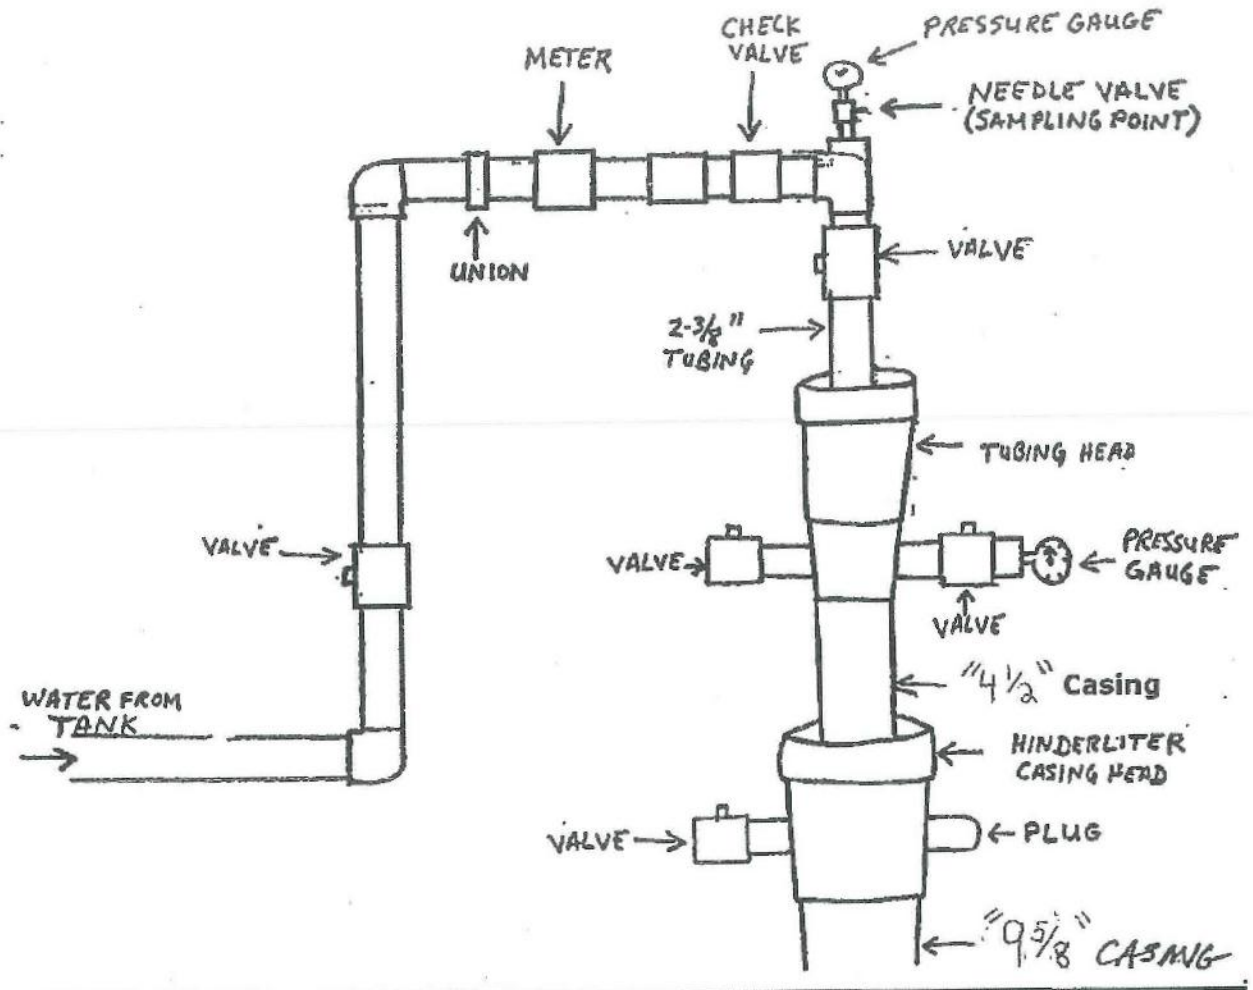 PRESSURE GAUGE
CHECK
VALVE
METER
NEEDLE VALVE
(SAMPLING POINT)
UNION
VALVE
2-3/8"
TUBING
TUBING HEAD
VALVE
VALVE
PRESSURE
GAUGE
VALVE
"4 1/2" Casing
WATER FROM
TANK
HINDERLITER
CASING HEAD
VALVE
PLUG
"9 5/8" CASING